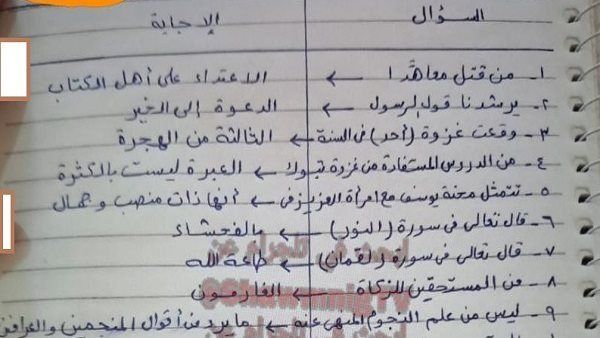 السؤال الإجابة
١- من قتل معاهدًا ← الاعتداء على أهل الكتاب
٢- يرشدنا قول الرسول ← الدعوة إلى الخير
٣- وقعت غزوة (أحد) فى السنة ← الثالثة من الهجرة
٤- من الدروس المستفادة من غزوة تبوك ← العبرة ليست بالكثرة
٥- تتمثل محنة يوسف مع امرأة العزيز فى ← أنها ذات منصب وجمال
٦- قال تعالى فى سورة (النور) ← بالفحشاء
٧- قال تعالى فى سورة (لقمان) ← طاعة الله
٨- من المستحقين للزكاة ← الغارمون
٩- ليس من علم النجوم المنهى عنه ← ما يرد من أقوال المنجمين والعرافين